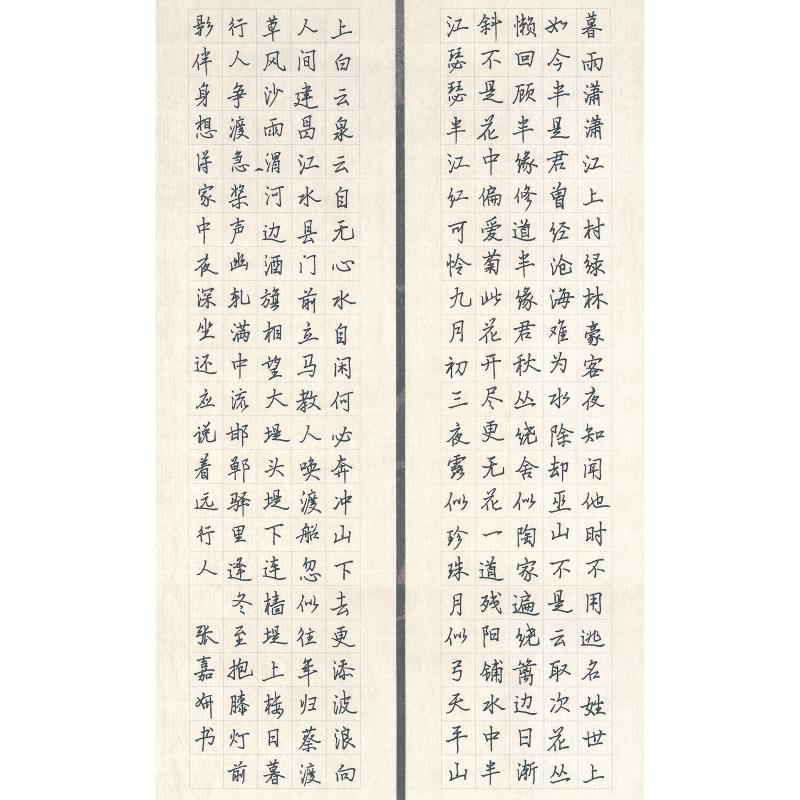 暮雨潇潇江上村绿林豪客夜知闻他时不用逃名姓世上
如今半是君曾经沧海难为水除却巫山不是云取次花丛
懒回顾半缘修道半缘君秋丛绕舍似陶家遍绕篱边日渐
斜不是花中偏爱菊此花开尽更无花一道残阳铺水中半
江瑟瑟半江红可怜九月初三夜露似珍珠月似弓天平山
上白云泉云自无心水自闲何必奔冲山下去更添波浪向
人间建昌江水县门前立马教人唤渡船忽似往年归蔡渡
草风沙雨渭河边酒旗相望大堤头堤下连樯堤上楼日暮
行人争渡急桨声幽轧满中流邯郸驿里逢冬至抱膝灯前
影伴身想得家中夜深坐还应说着远行人 张嘉妍书